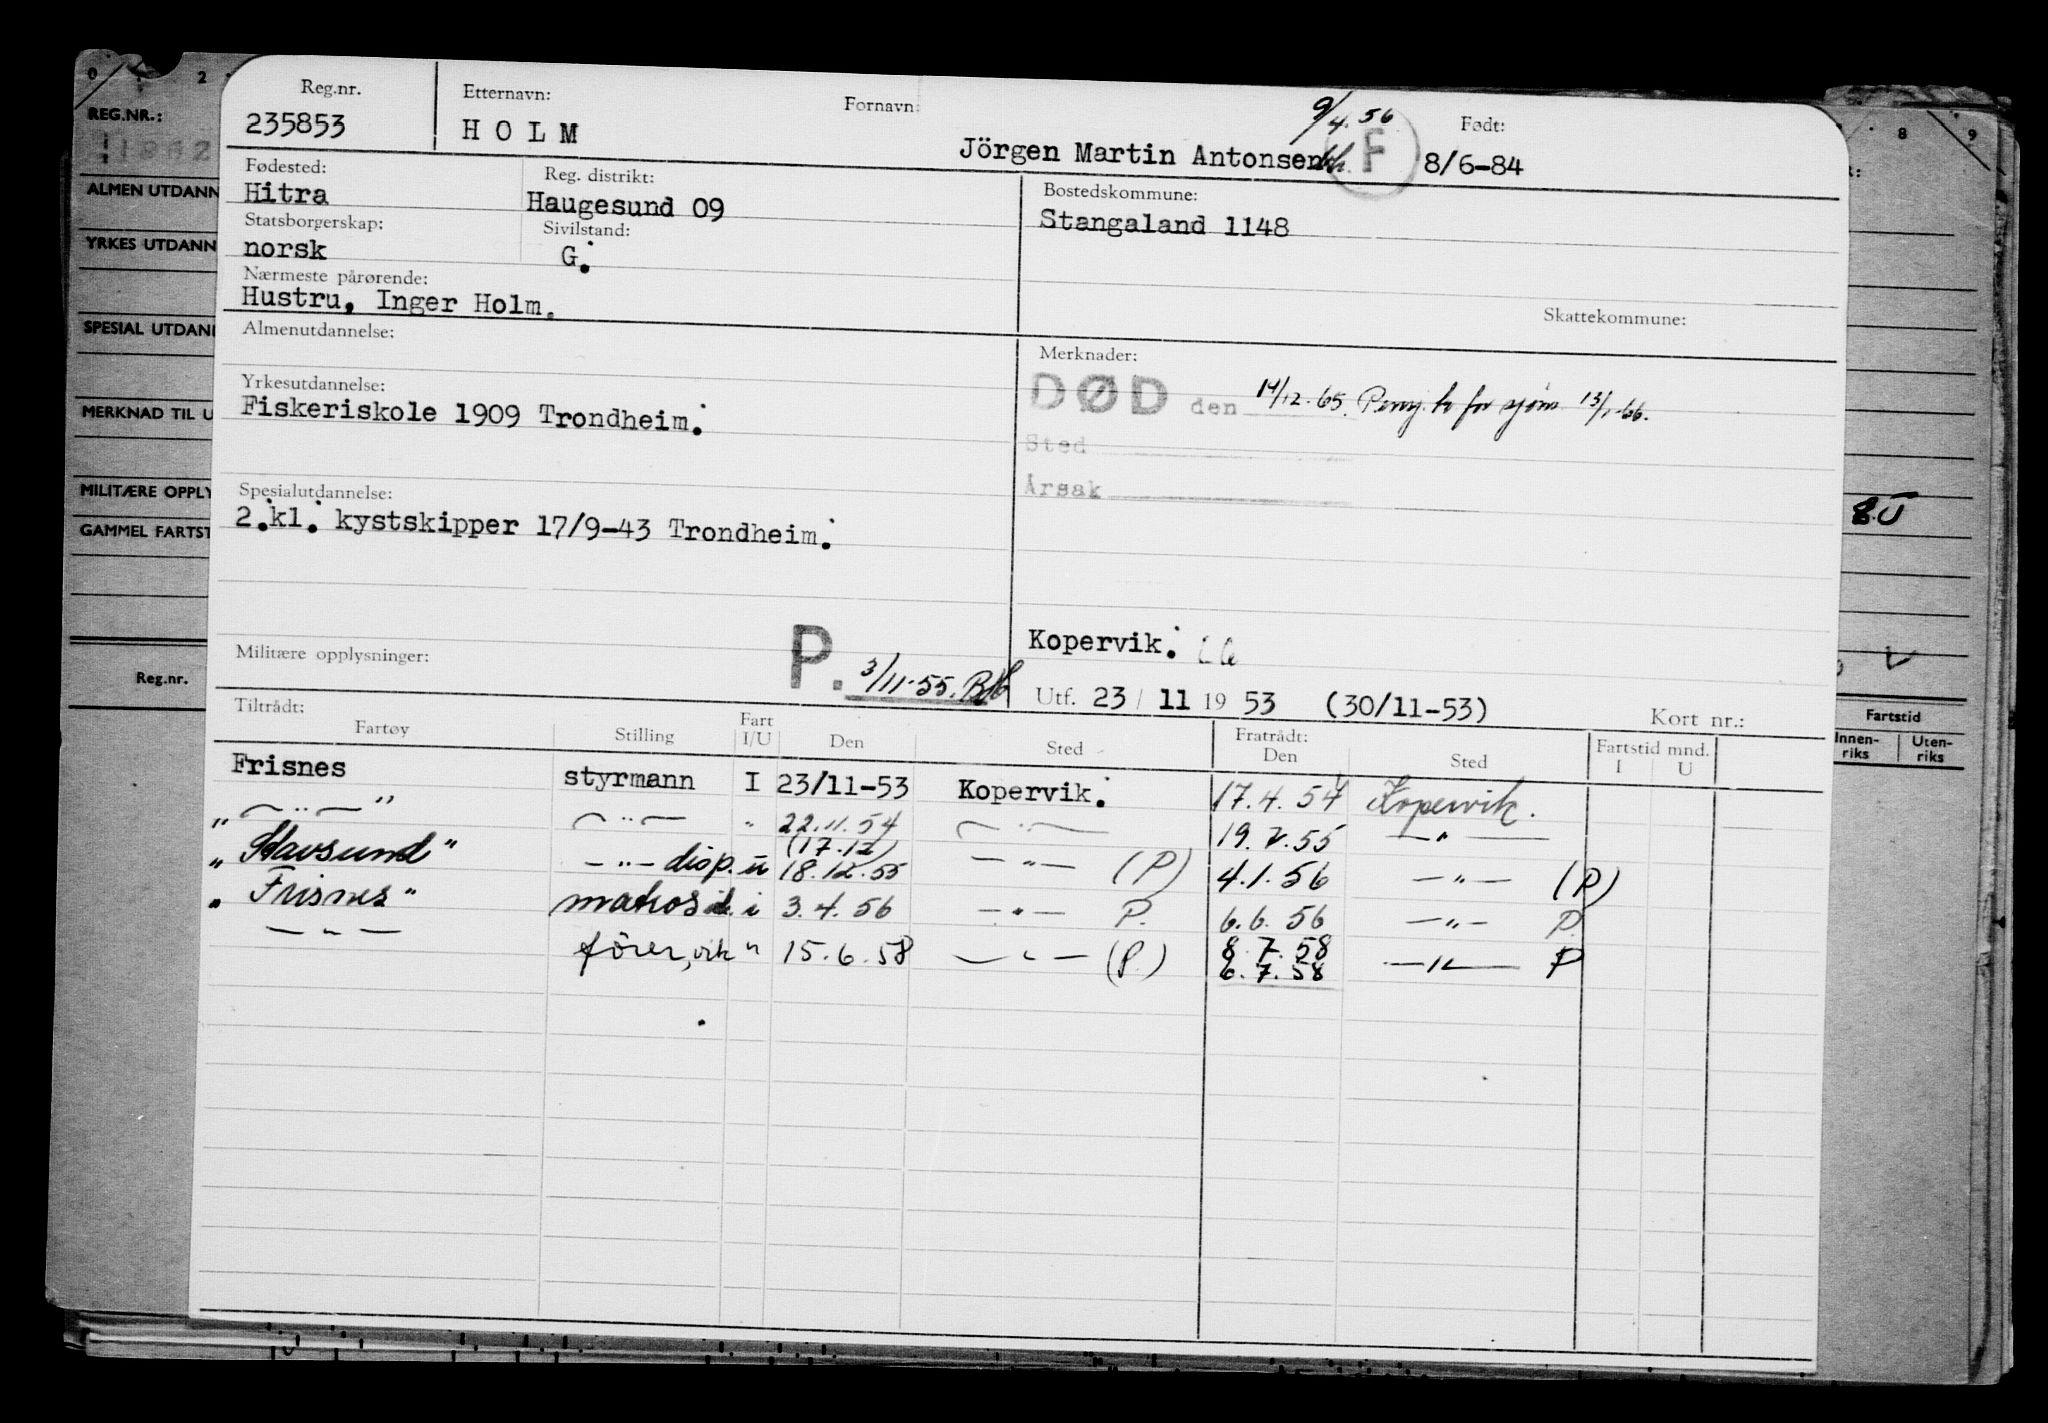 0 2 8 9
REG.NR.:
ALMEN UTDANN
YRKES UTDANN
SPESIAL UTDANN
MERKNAD TIL U
MILITÆRE OPPLY
GAMMEL FARTST
Reg.nr.
Reg.nr. Etternavn: Fornavn: 9/4.56 Født:
235853 HOLM Jörgen Martin Antonsen F 8/6-84
Fødested: Reg. distrikt: Bostedskommune:
Hitra Haugesund 09 Stangaland 1148
Statsborgerskap: Sivilstand:
norsk G.
Nærmeste pårørende:
Hustru, Inger Holm. Skattekommune:
Almenutdannelse: Merknader:
DØD den 14/12.65. Penj. tr for sjøm 13/1-66.
Yrkesutdannelse:
Fiskeriskole 1909 Trondheim. Sted
Årsak
Spesialutdannelse:
2.kl. kystskipper 17/9-43 Trondheim.
Kopervik.
Militære opplysninger: P. 3/11-55.
Utf. 23/ 11 19 53 (30/11-53) Kort nr.:
Tiltrådt: Fratrådt:
Fartøy Stilling Fart I/U Den Sted Den Sted Fartstid mnd. I U
Frisnes styrmann I 23/11-53 Kopervik. 17.4.54 Kopervik.
" — " — " — " — " 22.11.54 — " — 19.V.55 — " —
(17.12)
" Stavsund " — " — disp. u 18.12.55 — " — (P) 4.1.56 — " — (P)
" Frisnes " matros d. i 3.4.56 — " — P. 6.6.56 — " — P
— " — förer, vik " 15.6.58 — " — (P.) 8.7.58
6.7.58 — " — P
8.U
Fartstid
Innen-riks Uten-riks